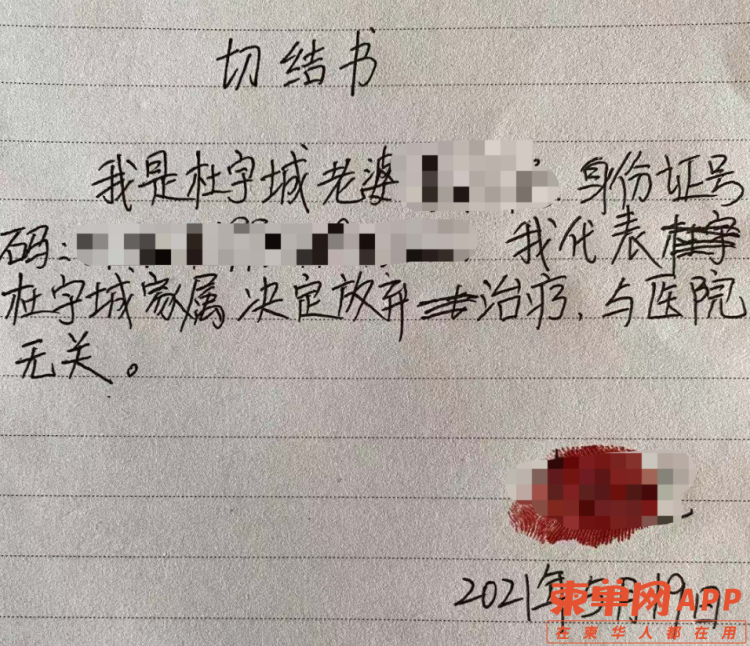 切结书
我是杜宇城老婆 身份证号
码: 我代表
杜宇城家属决定放弃 治疗，与医院
无关。
2021年5月19日
柬单网APP
在柬华人都在用